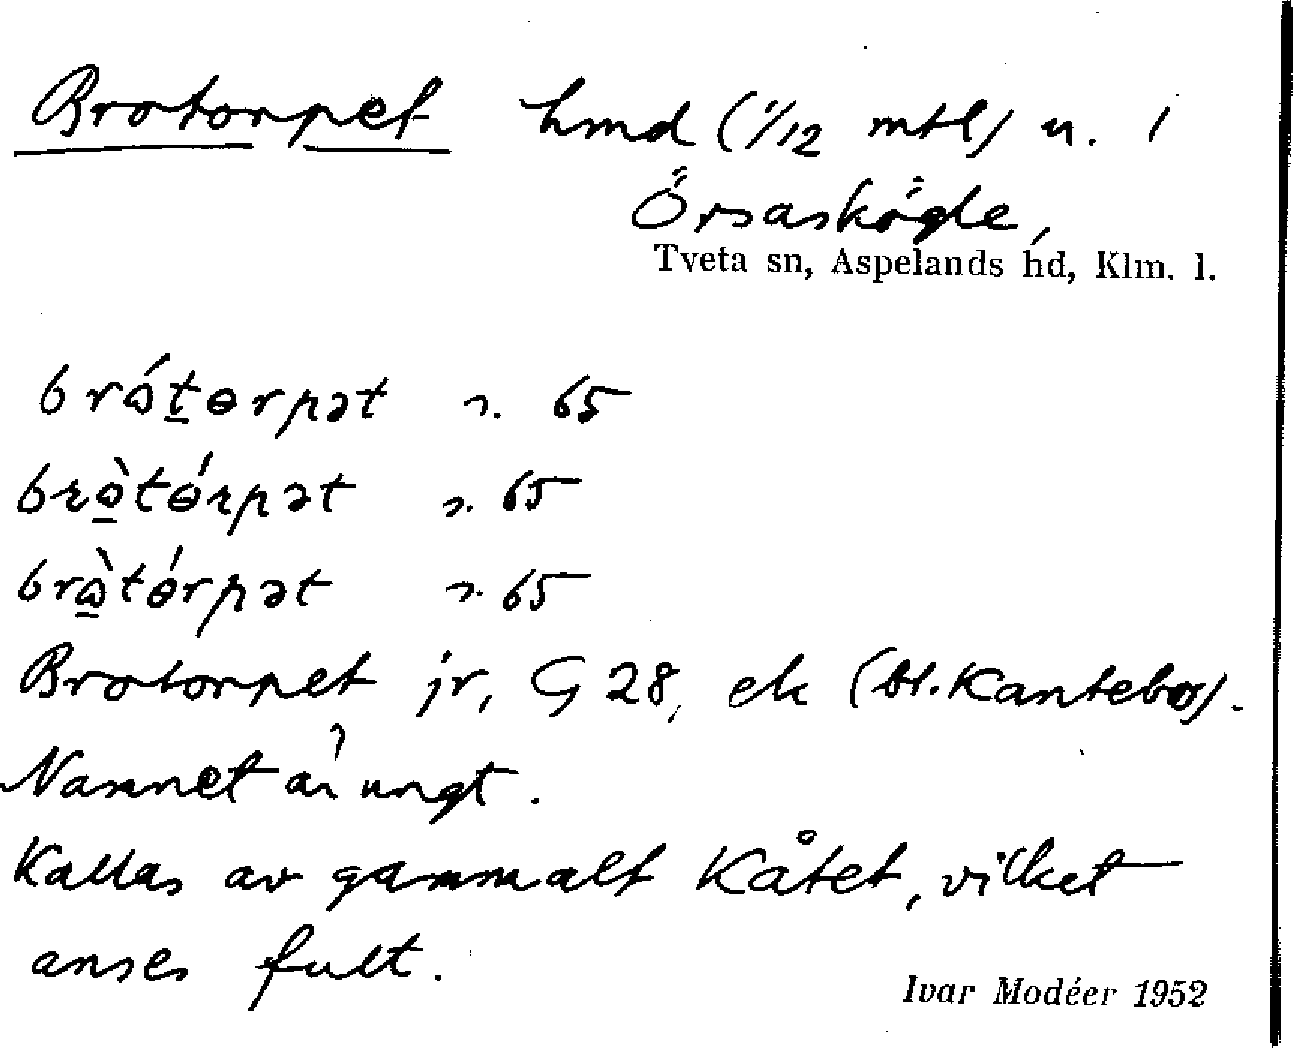 Brotorpet hmd (1/12 mtl) u. i
Örsasködle,
Tveta sn, Aspelands hd, Klm. l.
65
65
65
Brotorpet jr, G 28, ek (bl. Kantebo).
Namnet är ungt.
Kallas av gammalt Kåtet, vilket
anses fult.
Ivar Modéer 1952